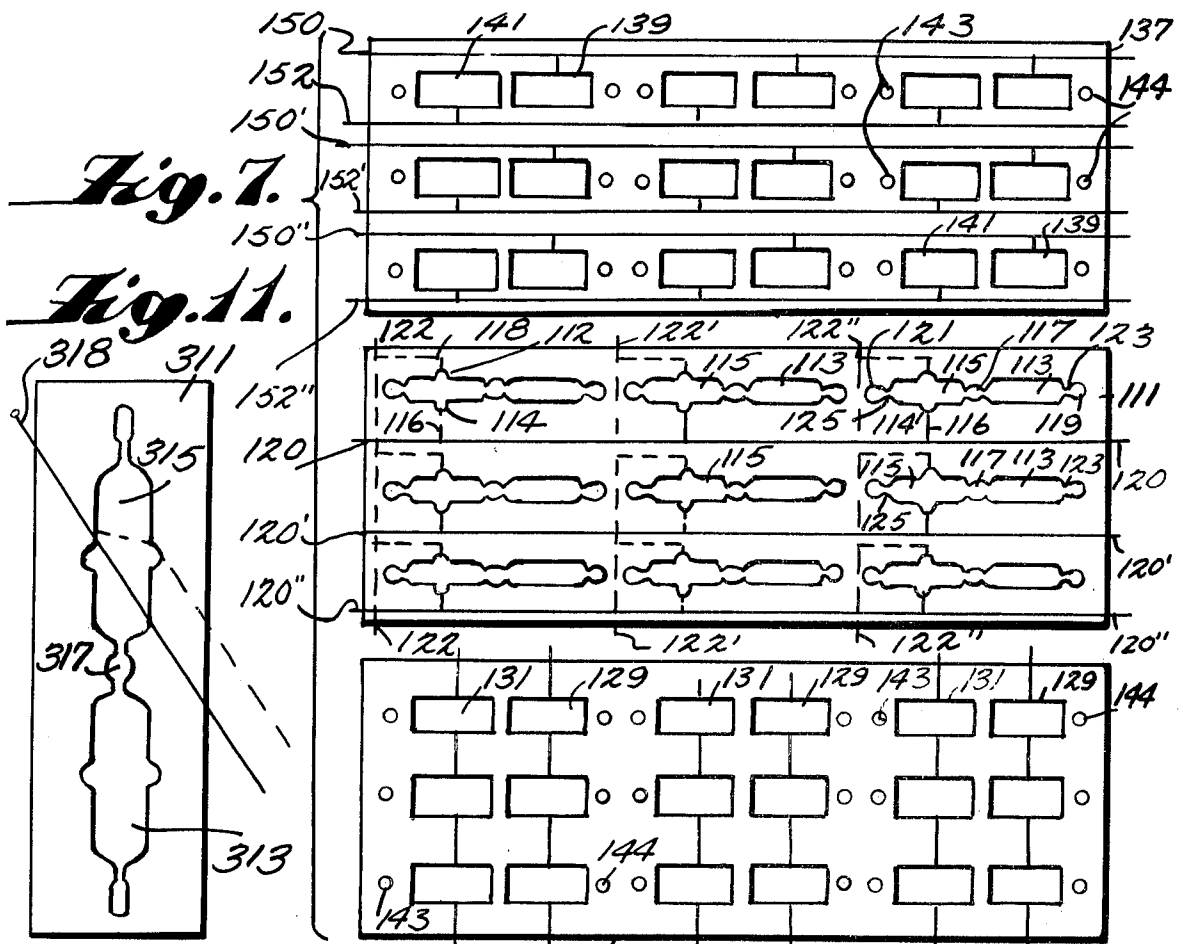 150 141 139 143 137
152 144
150'
Fig. 7. 152'
150" 141 139
Fig. 11.
318 311 122 118 112 122' 122" 121 117 123
115 113 115 113 111
152" 116 114 125 114' 116 119
315 120 115 115 117 113 123 120
125
120' 120'
120"
317 122 122' 122" 120"
131 129 131 129 143 131 129 144
313 144
143